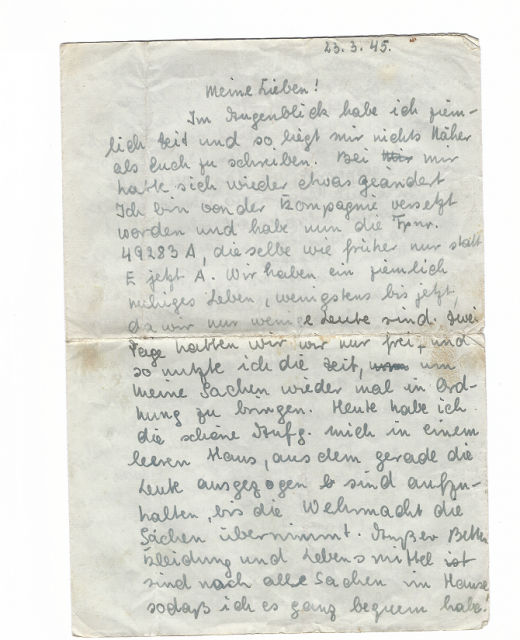 23.3.45.
Meine Lieben!
Im Augenblick habe ich ziem-
lich Zeit und so liegt mir nichts Näher
als Euch zu schreiben. Bei mir
hatte sich wieder etwas geändert
Ich bin von der Kompagnie versetzt
worden und habe nun die Fpnr.
49283 A, dieselbe wie früher nur statt
E jetzt A. Wir haben ein ziemlich
ruhiges Leben, wenigstens bis jetzt,
da wir nur wenige Leute sind. Zwei
Tage hatten wir wir nur frei, und
so nutzte ich die Zeit, um
meine Sachen wieder mal in Ord-
nung zu bringen. Heute habe ich
die schöne Aufg. mich in einem
leeren Haus, aus dem gerade die
Leute ausgezogen sind aufzu-
halten, bis die Wehrmacht die
Sachen übernimmt. Außer Betten
Kleidung und Lebensmittel ist
sind noch alle Sachen im Hause
sodaß ich es ganz bequem habe.